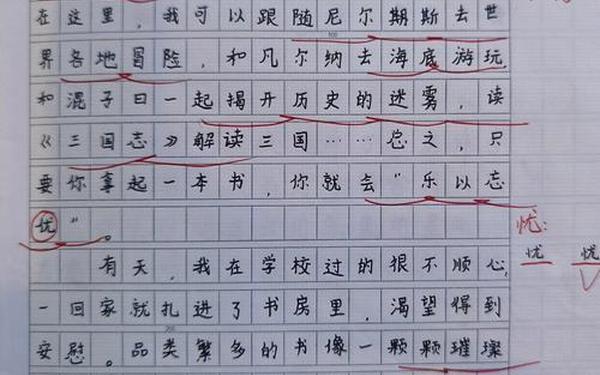 在这里，我可以跟随尼尔期斯去世
界各地冒险，和凡尔纳去海底游玩，
和混子曰一起揭开历史的迷雾，读
《三国志》解读三国……总之，只
要你拿起一本书，你就会“乐以忘
忧”。
忧：
忧 忧
有天，我在学校过的很不顺心，
一回家就扎进了书房里，渴望得到
安慰。品类繁多的书像一颗颗璀璨